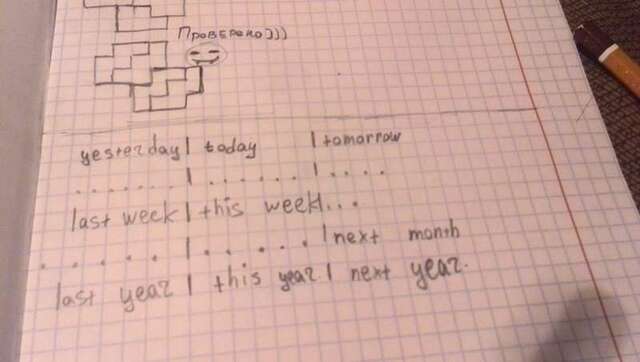 Проверено)))
yesterday | today | tomorrow
. . . . . . . | . . . . . . | . . . .
last week | this week | . . .
. . . . . | . . . . . . | next month
last year | this year | next year.